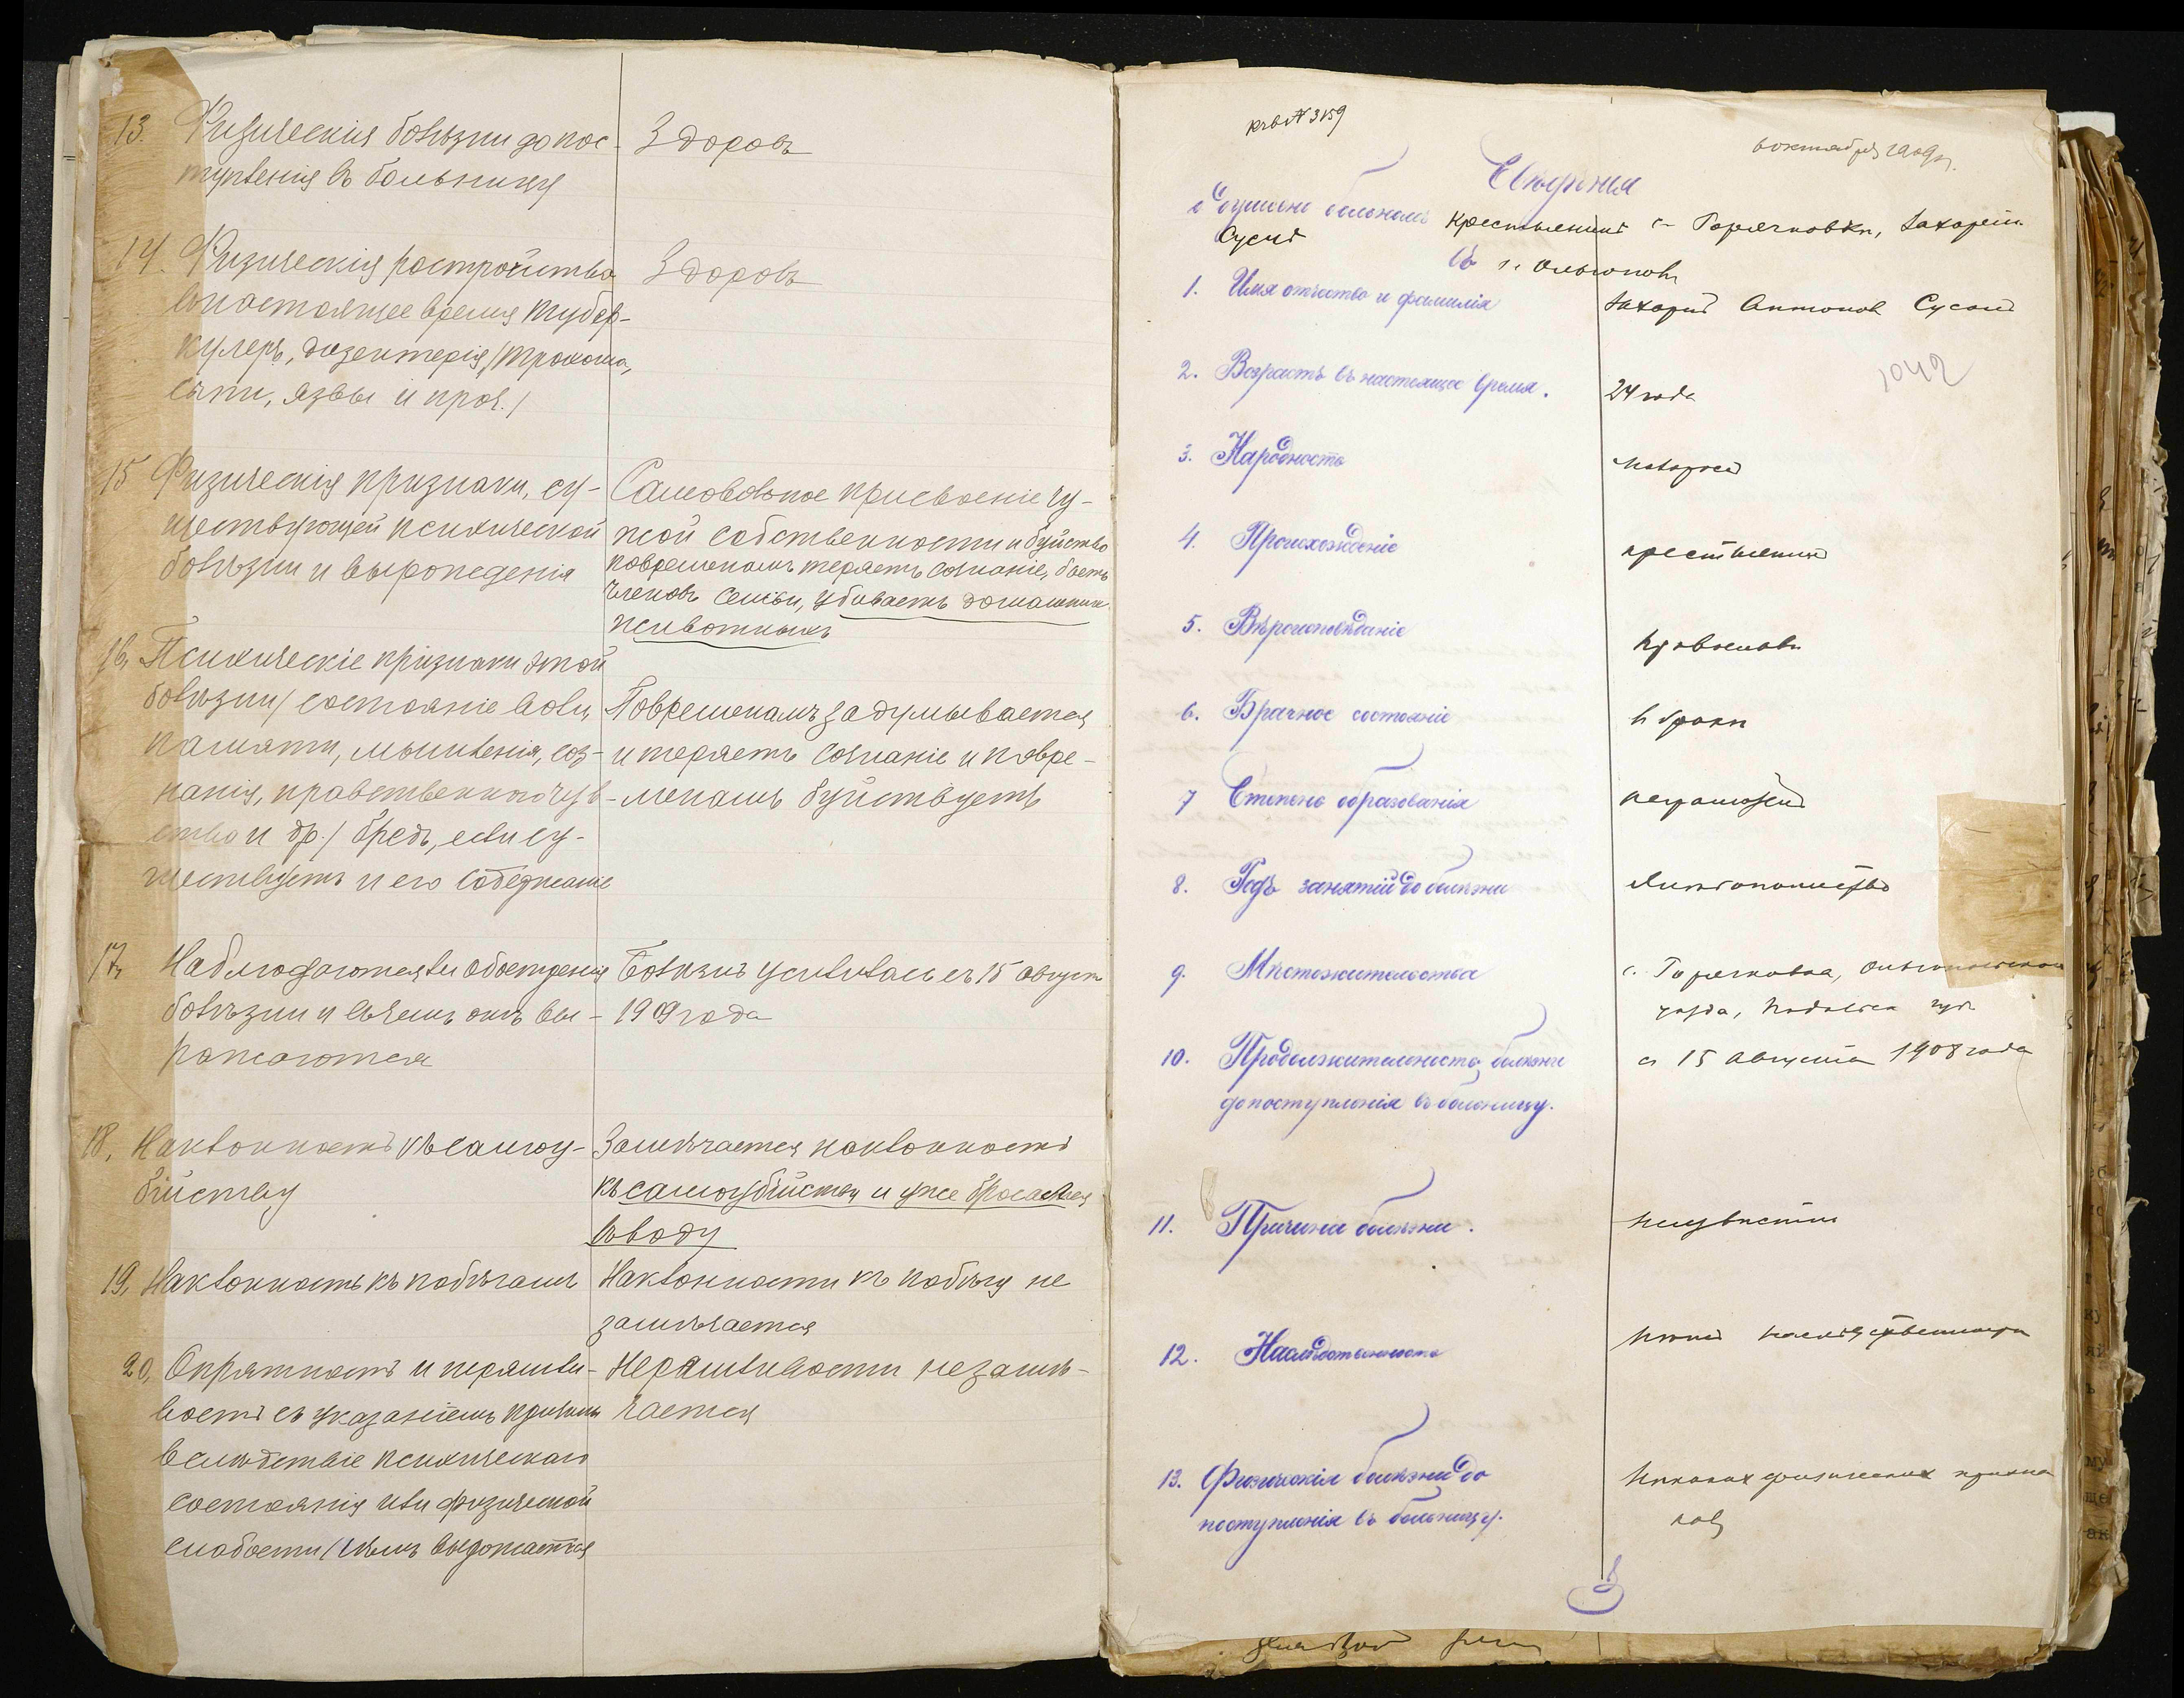 13. Физическія болѣзни до пос-
тупленія въ больницу
Здоровъ
14. Физическія ростройства
въ настоящее время тубер-
кулезъ, дизентерія, /трахома,
сыпи, язвы и проч./
Здоровъ
15 Физическія признаки, су-
ществующей психической
болѣзни и вырожденія
Самовольное присвоеніе чу-
жой собственности и буйство
повременамъ теряетъ сознаніе, бьетъ
членовъ семьи, убиваетъ домашнихъ
животныхъ
16, Психическіе признаки этой
болѣзни / состояніе воли,
памяти, мышленія, соз-
нанія, нравственнаго чув-
ства и др. / бредъ, если су-
ществуетъ и его содержаніе
Повременамъ задумывается
и теряетъ сознаніе и повре-
менамъ буйствуетъ
17, Наблюдаются ли обостренія
болѣзни и въ чемъ онѣ вы-
ражаются
Болѣзнь усилилась съ 15 август
1909 года
18, Наклонность къ самоу-
бійству
Замѣчается наклонность
къ самоубійству и уже бросался
въ воду
19, Наклонность къ побѣгамъ
Наклонности къ побѣгу не
замѣчается
20, Опрятность и неряшли-
вость съ указаніемъ причинъ
вслѣдствіе психическаго
состоянія или физической
слабости / чѣмъ выражается
Неряшливости не замѣ-
чается
№ 3159
6 октября 1909 г.
Свѣдѣнія
о душевно больномъ крестьянинѣ с. Горячковки, Захаріи
Сусла
въ г. Ольгополѣ
1. Имя отчество и фамилія
Захарій Антоновъ
2. Возрастъ въ настоящее время.
24 года
1042
3. Народность
4. Происхожденіе
крестьянинъ
5. Вѣроисповѣданіе
Православн
6. Брачное состояніе
въ бракѣ
7 Степень образованія
неграмотенъ
8. Родъ занятій до болѣзни
9. Мѣстожительства
с. Горячковка, Ольгопольскаго
уѣзда, Подольск губ.
10. Продолжительность болѣзни
до поступленія въ больницу.
съ 15 августа 1908 года
11. Причины болѣзни.
Неизвѣстны
12. Наслѣдственность
наслѣдственности
13. Физическія болѣзни до
поступленія въ больницу.
Никакихъ физическихъ призна
ковъ